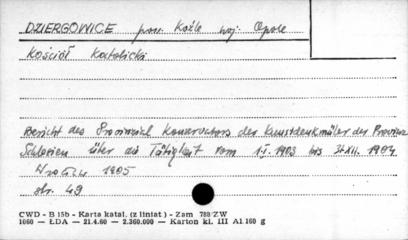 DZIERGOWICE pow. Koźle woj. Opole
Kościół Katolicki
Bericht des Provinzial Konservators der Kunstdenkmäler der Provinz
Schlesien über die Tätigkeit vom 1.I.1903 bis 31.XII.1904
Wrocław 1905
str. 49
CWD - B 15b - Karta katal. (z liniat.) - Zam 788/ZW
1060 — ŁDA — 21.4.60 — 2.360.000 — Karton kl. III A1.160 g